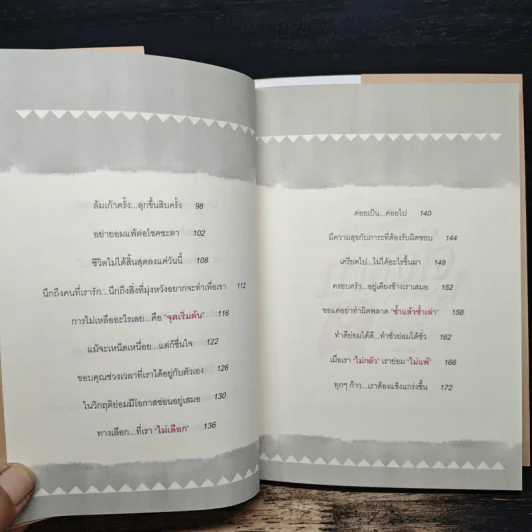 ล้มเก้าครั้ง...ลุกขึ้นสิบครั้ง 98
อย่ายอมแพ้ต่อโชคชะตา 102
ชีวิตไม่ได้สิ้นสุดลงแค่วันนี้ 108
นึกถึงคนที่เรารัก...นึกถึงสิ่งที่มุ่งหวังอยากจะทำเพื่อเขา 112
การไม่เหลืออะไรเลย...คือ "จุดเริ่มต้น" 116
แม้จะเหน็ดเหนื่อย...แต่ก็ชื่นใจ 122
ขอบคุณช่วงเวลาที่เราได้อยู่กับตัวเอง 126
ในวิกฤติย่อมมีโอกาสซ่อนอยู่เสมอ 130
ทางเลือก...ที่เรา "ไม่เลือก" 136
ค่อยเป็น...ค่อยไป 140
มีความสุขกับภาระที่ต้องรับผิดชอบ 144
เครียดไป...ไม่ได้อะไรขึ้นมา 148
ครอบครัว...อยู่เคียงข้างเราเสมอ 152
ขอแค่อย่าทำผิดพลาด "ซ้ำแล้วซ้ำเล่า" 158
ทำดีย่อมได้ดี...ทำชั่วย่อมได้ชั่ว 162
เมื่อเรา "ไม่กลัว" เราย่อม "ไม่แพ้" 166
ทุกๆ ก้าว...เราต้องแข็งแกร่งขึ้น 172